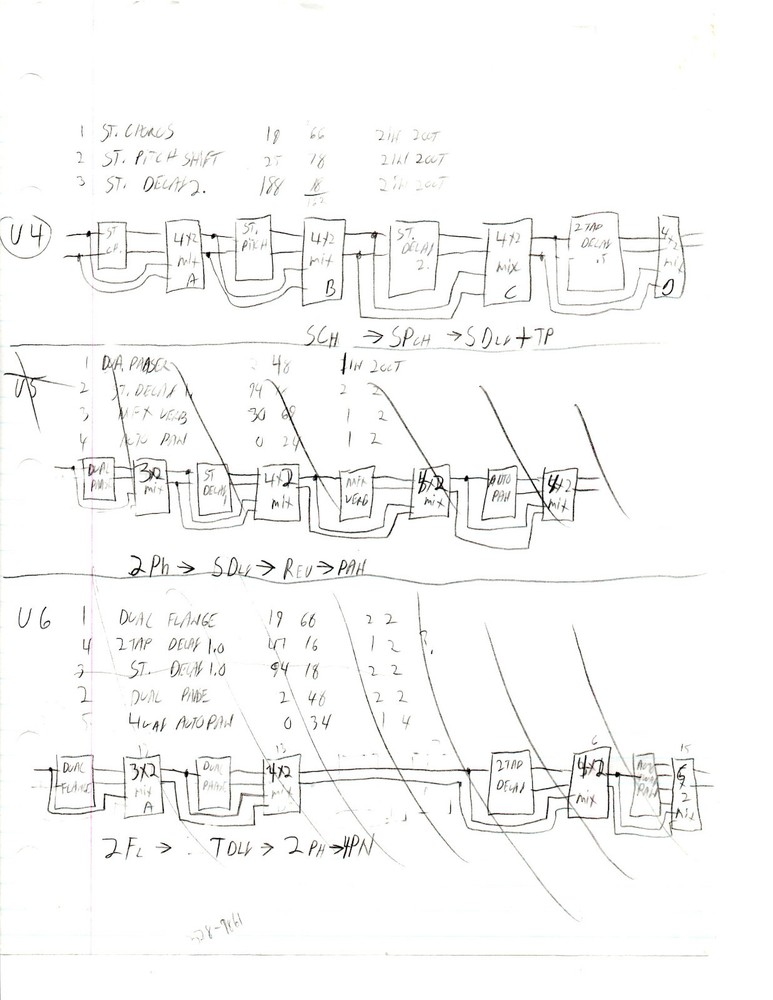 1 ST. CHORUS 18 66 2IN 2OUT
2 ST. PITCH SHIFT 25 78 2IN 2OUT
3 ST. DELAY 2. 188 18 2IN 2OUT
U4
ST CH. 4x2 mix A ST. PITCH 4x2 mix B ST. DELAY 2. 4x2 mix C 2TAP DELAY .5 4x2 mix D
SCH → SPCH → SDLY + TP
U5
1 DUAL PHASER 2 48 1IN 2OUT
2 ST. DELAY 1. 94 2 2
3 MFX VERB 30 68 1 2
4 AUTO PAN 0 24 1 2
DUAL PHASE 3x2 mix ST DELAY 4x2 mix MFX VERB 4x2 mix AUTO PAN 4x2 mix
2Ph → SDLY → REV → PAN
U6
1 DUAL FLANGE 19 60 2 2
4 2TAP DELAY 1.0 47 16 1 2 ?
3 ST. DELAY 1.0 94 18 2 2
2 DUAL PHASE 2 48 2 2
5 4WAY AUTOPAN 0 34 1 4
12 13 6 15
DUAL FLANGE 3x2 mix A DUAL PHASE 4x2 mix 2TAP DELAY 4x2 mix AUTO PAN 6 x 2 mix
2FL → TDLY → 2PH → 4PN